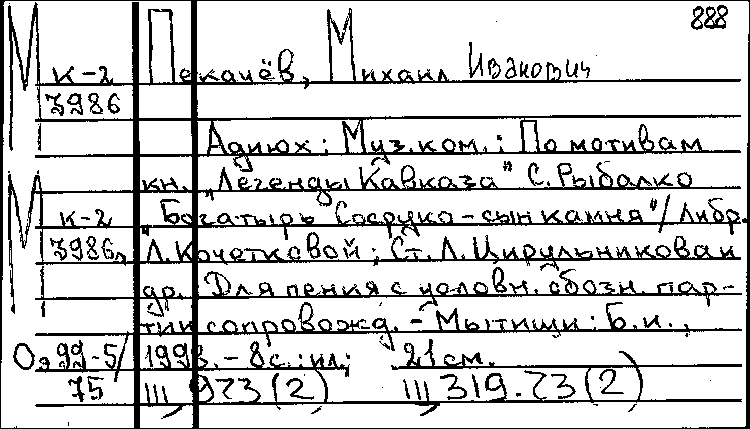 888
М Пекачёв, Михаил Иванович
к-2
3986
Адиюх: Муз. ком.: По мотивам
кн. "Легенды Кавказа" С. Рыбалко
М "Богатырь Сосруко - сын камня"/ Либр.
к-2
3986а Л. Кочетковой; Ст. Л. Цирульникова и
др. Для пения с условн. обозн. пар-
тии сопровожд. - Мытищи: Б.и.,
Оэ 99-5/ 1998. - 8с.: ил; 21 см.
75 III, 923(2) III, 319.23(2)